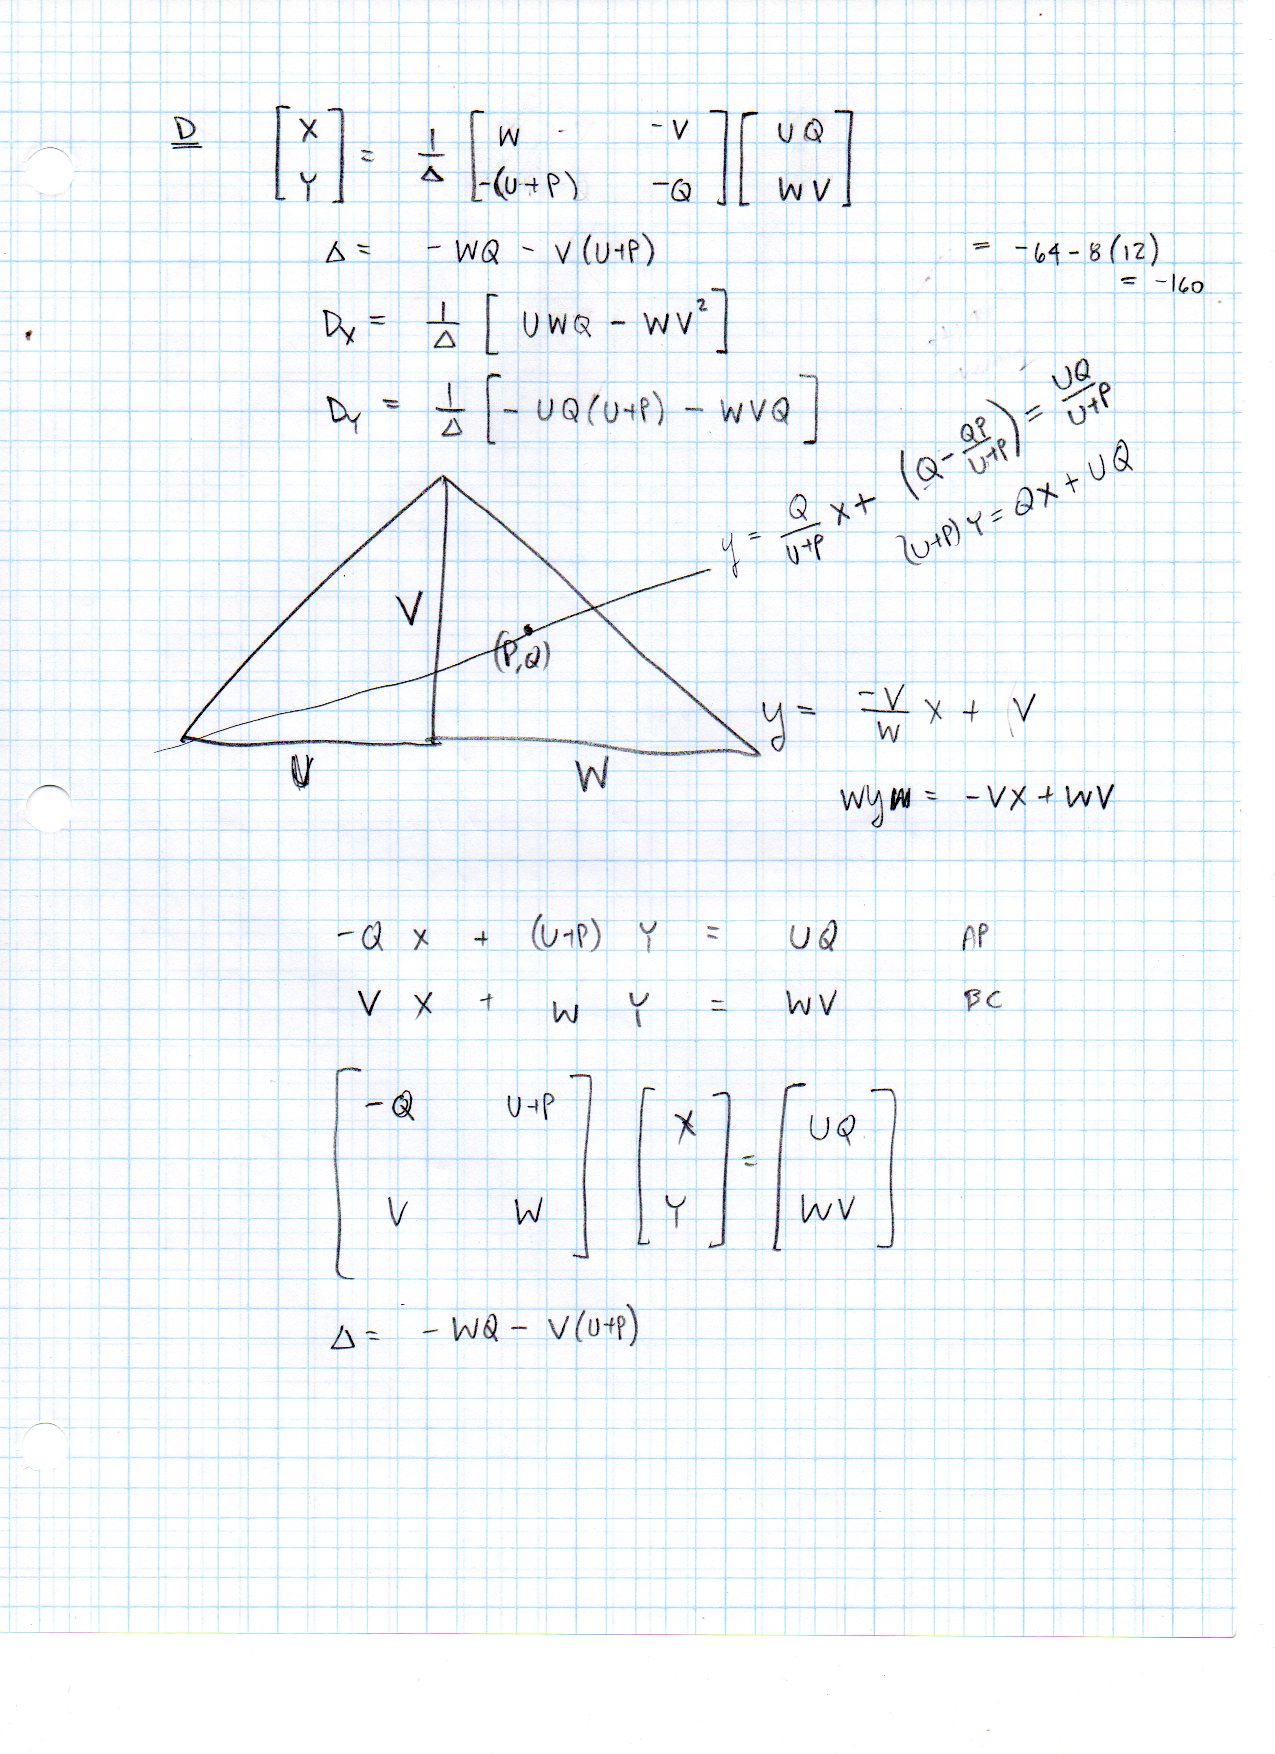 D [X Y] = 1/Δ [W -V -(U+P) -Q] [UQ WV]
Δ = -WQ - V(U+P) = -64-8(12)
= -160
Dx = 1/Δ [UWQ - WV²]
DY = 1/Δ [-UQ(U+P) - WVQ]
y = Q/U+P x + (Q - QP/U+P) = UQ/U+P
(U+P)Y = QX + UQ
V
(P,Q)
U
W
y = -V/W x + V
wy = -VX + WV
-Q X + (U+P) Y = UQ AP
V X + W Y = WV BC
[-Q U+P V W] [X Y] = [UQ WV]
Δ = -WQ - V(U+P)